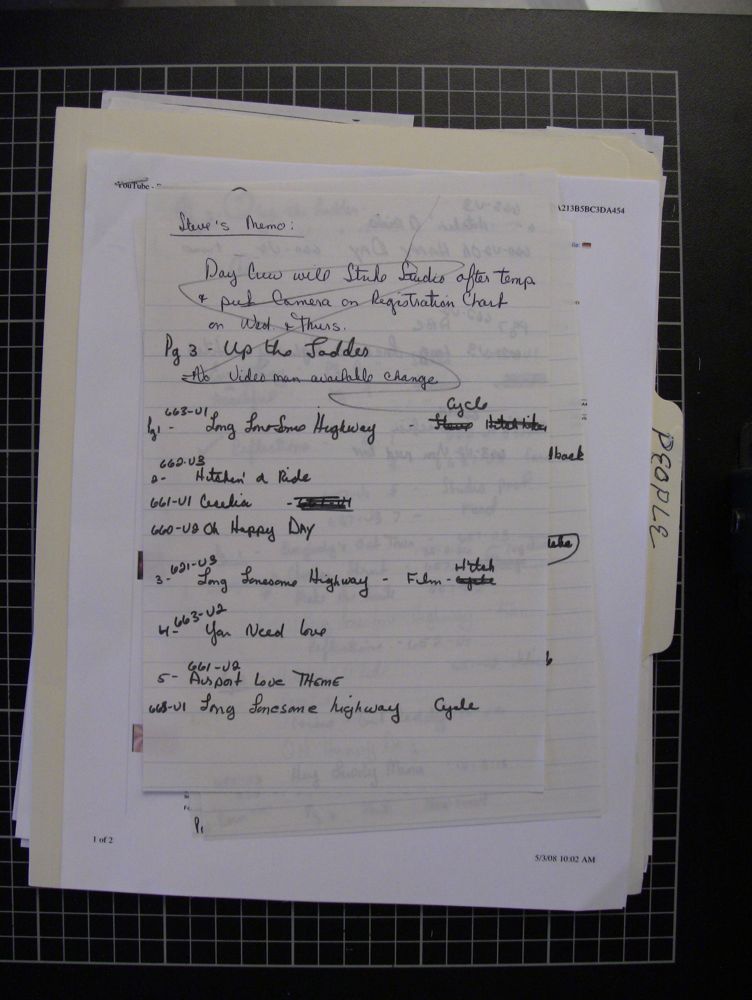 YouTube -
A213B5BC3DA454
Steve's Memo:
Day Crew will Strike Studio after temp
& put Camera on Registration Chart
on Wed & Thurs.
Pg 3 - Up the Ladder
No Video man available change
Cycle
663-V1
Pg1 - Long Lonesome Highway -
back
662-V3
2- Hitchin' a Ride
661-V1 Cecelia -
660-V2 Oh Happy Day
621-V3
Hitch
3- Long Lonesome Highway - Film -
663-V2
4- You Need Love
661-V2
5- Airport Love THEME
663-V1 Long Lonesome highway Cycle
PEOPLE
1 of 2
5/3/08 10:02 AM